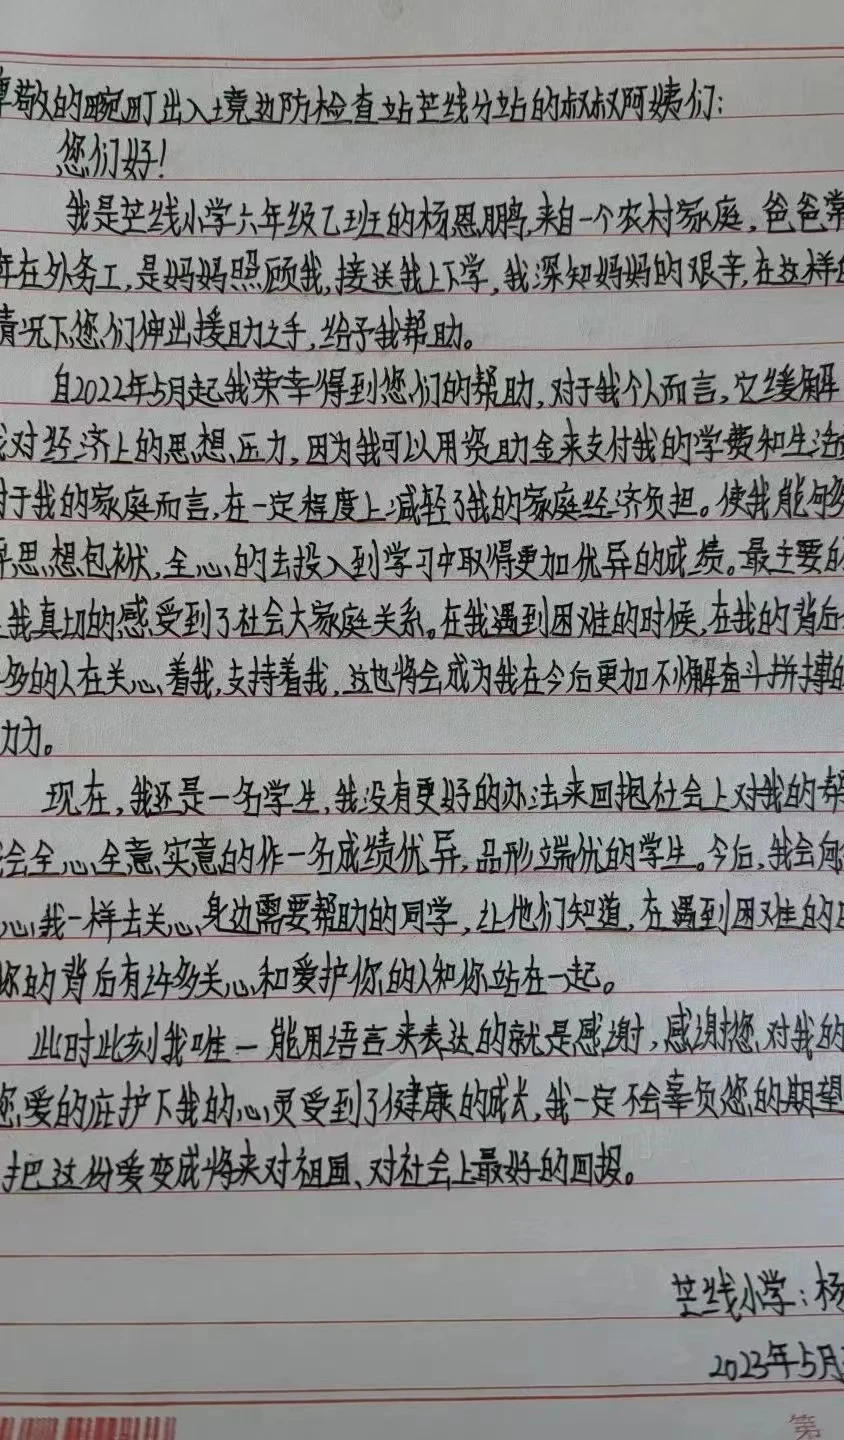 尊敬的畹町出入境边防检查站芒线分站的叔叔阿姨们：
您们好！
我是芒线小学六年级乙班的杨恩鹏,来自一个农村家庭，爸爸常
年在外务工,是妈妈照顾我,接送我上下学,我深知妈妈的艰辛,在这样的
情况下您们伸出援助之手,给予我帮助。
自2022年5月起我荣幸得到您们的帮助,对于我个人而言，它缓解
我对经济上的思想压力,因为我可以用资助金来支付我的学费和生活
对于我的家庭而言,在一定程度上减轻了我的家庭经济负担。使我能够
思想包袱,全心的去投入到学习中取得更加优异的成绩。最主要的
我真切的感受到了社会大家庭关系。在我遇到困难的时候,在我的背后
多的人在关心着我,支持着我,这也将会成为我在今后更加不懈奋斗拼搏的
动力。
现在,我还是一名学生,我没有更好的办法来回抱社会上对我的帮
会全心全意实意的作一名成绩优异,品形端优的学生。今后,我会向
心我一样去关心身边需要帮助的同学,让他们知道,在遇到困难的时
你的背后有许多关心和爱护你的人和你站在一起。
此时此刻我唯一能用语言来表达的就是感谢,感谢您对我的
您爱的庇护下我的心灵受到了健康的成长,我一定不会辜负您的期望
把这份爱变成将来对祖国、对社会上最好的回报。
芒线小学：杨
2023年5月
第